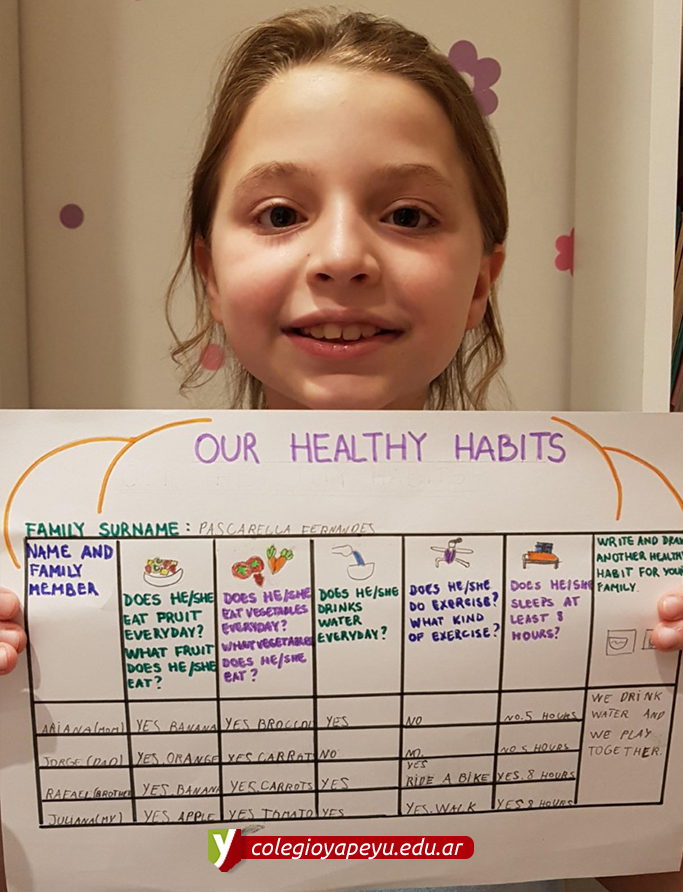 OUR HEALTHY HABITS
FAMILY SURNAME: PASCARELLA FERNANDES
NAME AND
FAMILY
MEMBER
DOES HE/SHE
EAT FRUIT
EVERYDAY?
WHAT FRUIT
DOES HE/SHE
EAT?
DOES HE/SHE
EAT VEGETABLES
EVERYDAY?
WHAT VEGETABLES
DOES HE/SHE
EAT?
DOES HE/SHE
DRINKS
WATER
EVERYDAY?
DOES HE/SHE
DO EXERCISE?
WHAT KIND
OF EXERCISE?
DOES HE/SHE
SLEEPS AT
LEAST 8
HOURS?
WRITE AND DRAW
ANOTHER HEALTHY
HABIT FOR YOUR
FAMILY.
ARIANA(MOM) YES BANANA YES BROCCOLI YES NO NO. 5 HOURS
JORGE (DAD) YES, ORANGE YES CARROT NO NO. NO 5 HOURS
RAFAEL(BROTHER YES, BANANA YES, CARROTS YES YES
RIDE A BIKE YES, 8 HOURS
JULIANA(MY) YES APPLE YES TOMATO YES YES, WALK YES 8 HOURS
WE DRINK
WATER AND
WE PLAY
TOGETHER.
colegioyapeyu.edu.ar